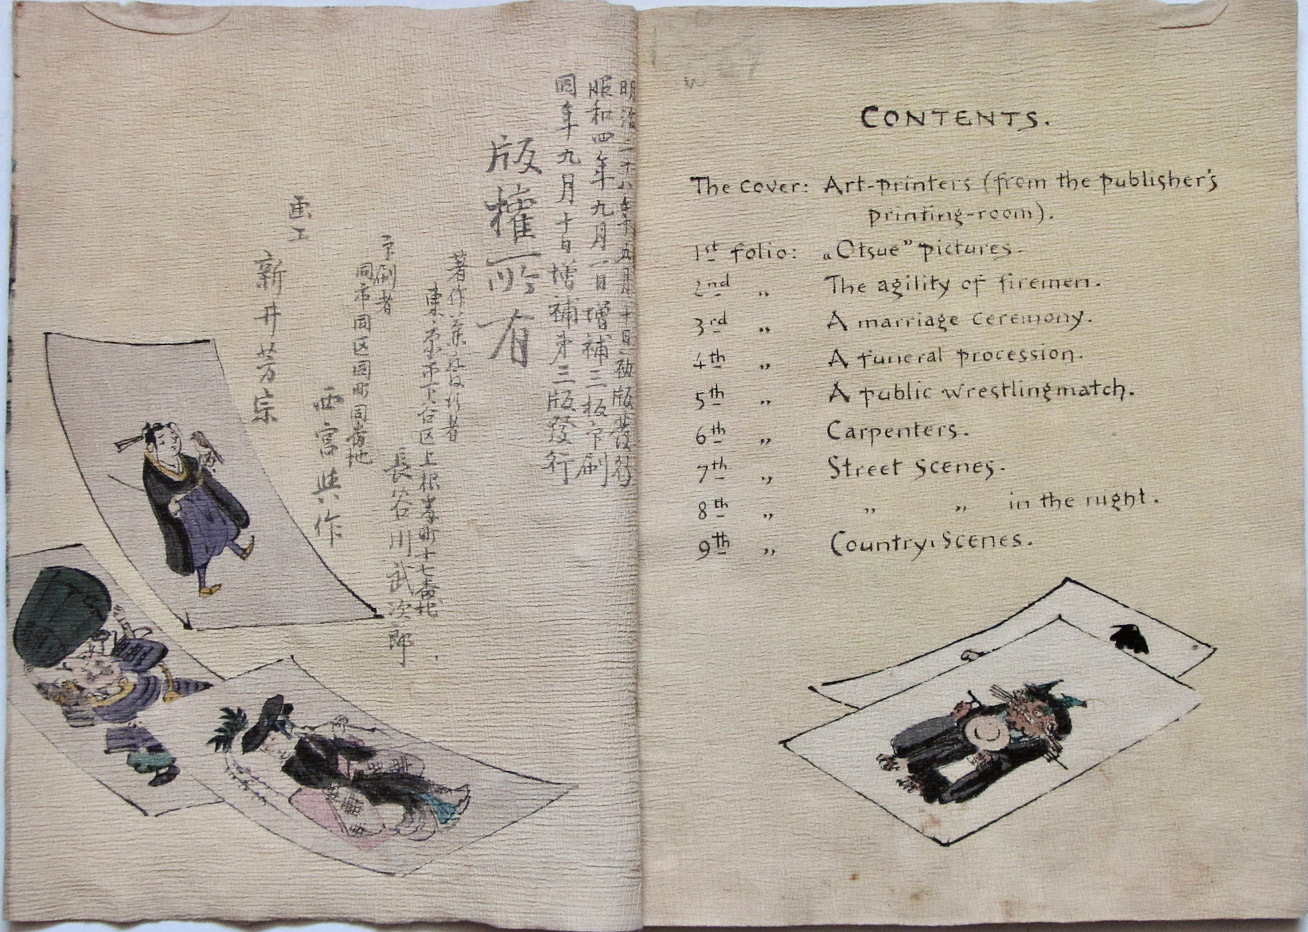 明治二十八年五月十日初版發行
昭和四年九月一日增補三板印刷
同年九月十日增補第三版發行
版權所有
著作兼發行者
東京市下谷区上根岸町十七番地
長谷川武次郎
印刷者
同市同区同町同番地
西宮與作
画工
新井芳宗
CONTENTS.
The cover: Art-printers (from the publisher's
printing-room).
1st folio: „Otsue” pictures.
2nd „ The agility of firemen.
3rd „ A marriage ceremony.
4th „ A funeral procession.
5th „ A public wrestlingmatch.
6th „ Carpenters.
7th „ Street Scenes.
8th „ „ „ in the night.
9th „ Country-Scenes.